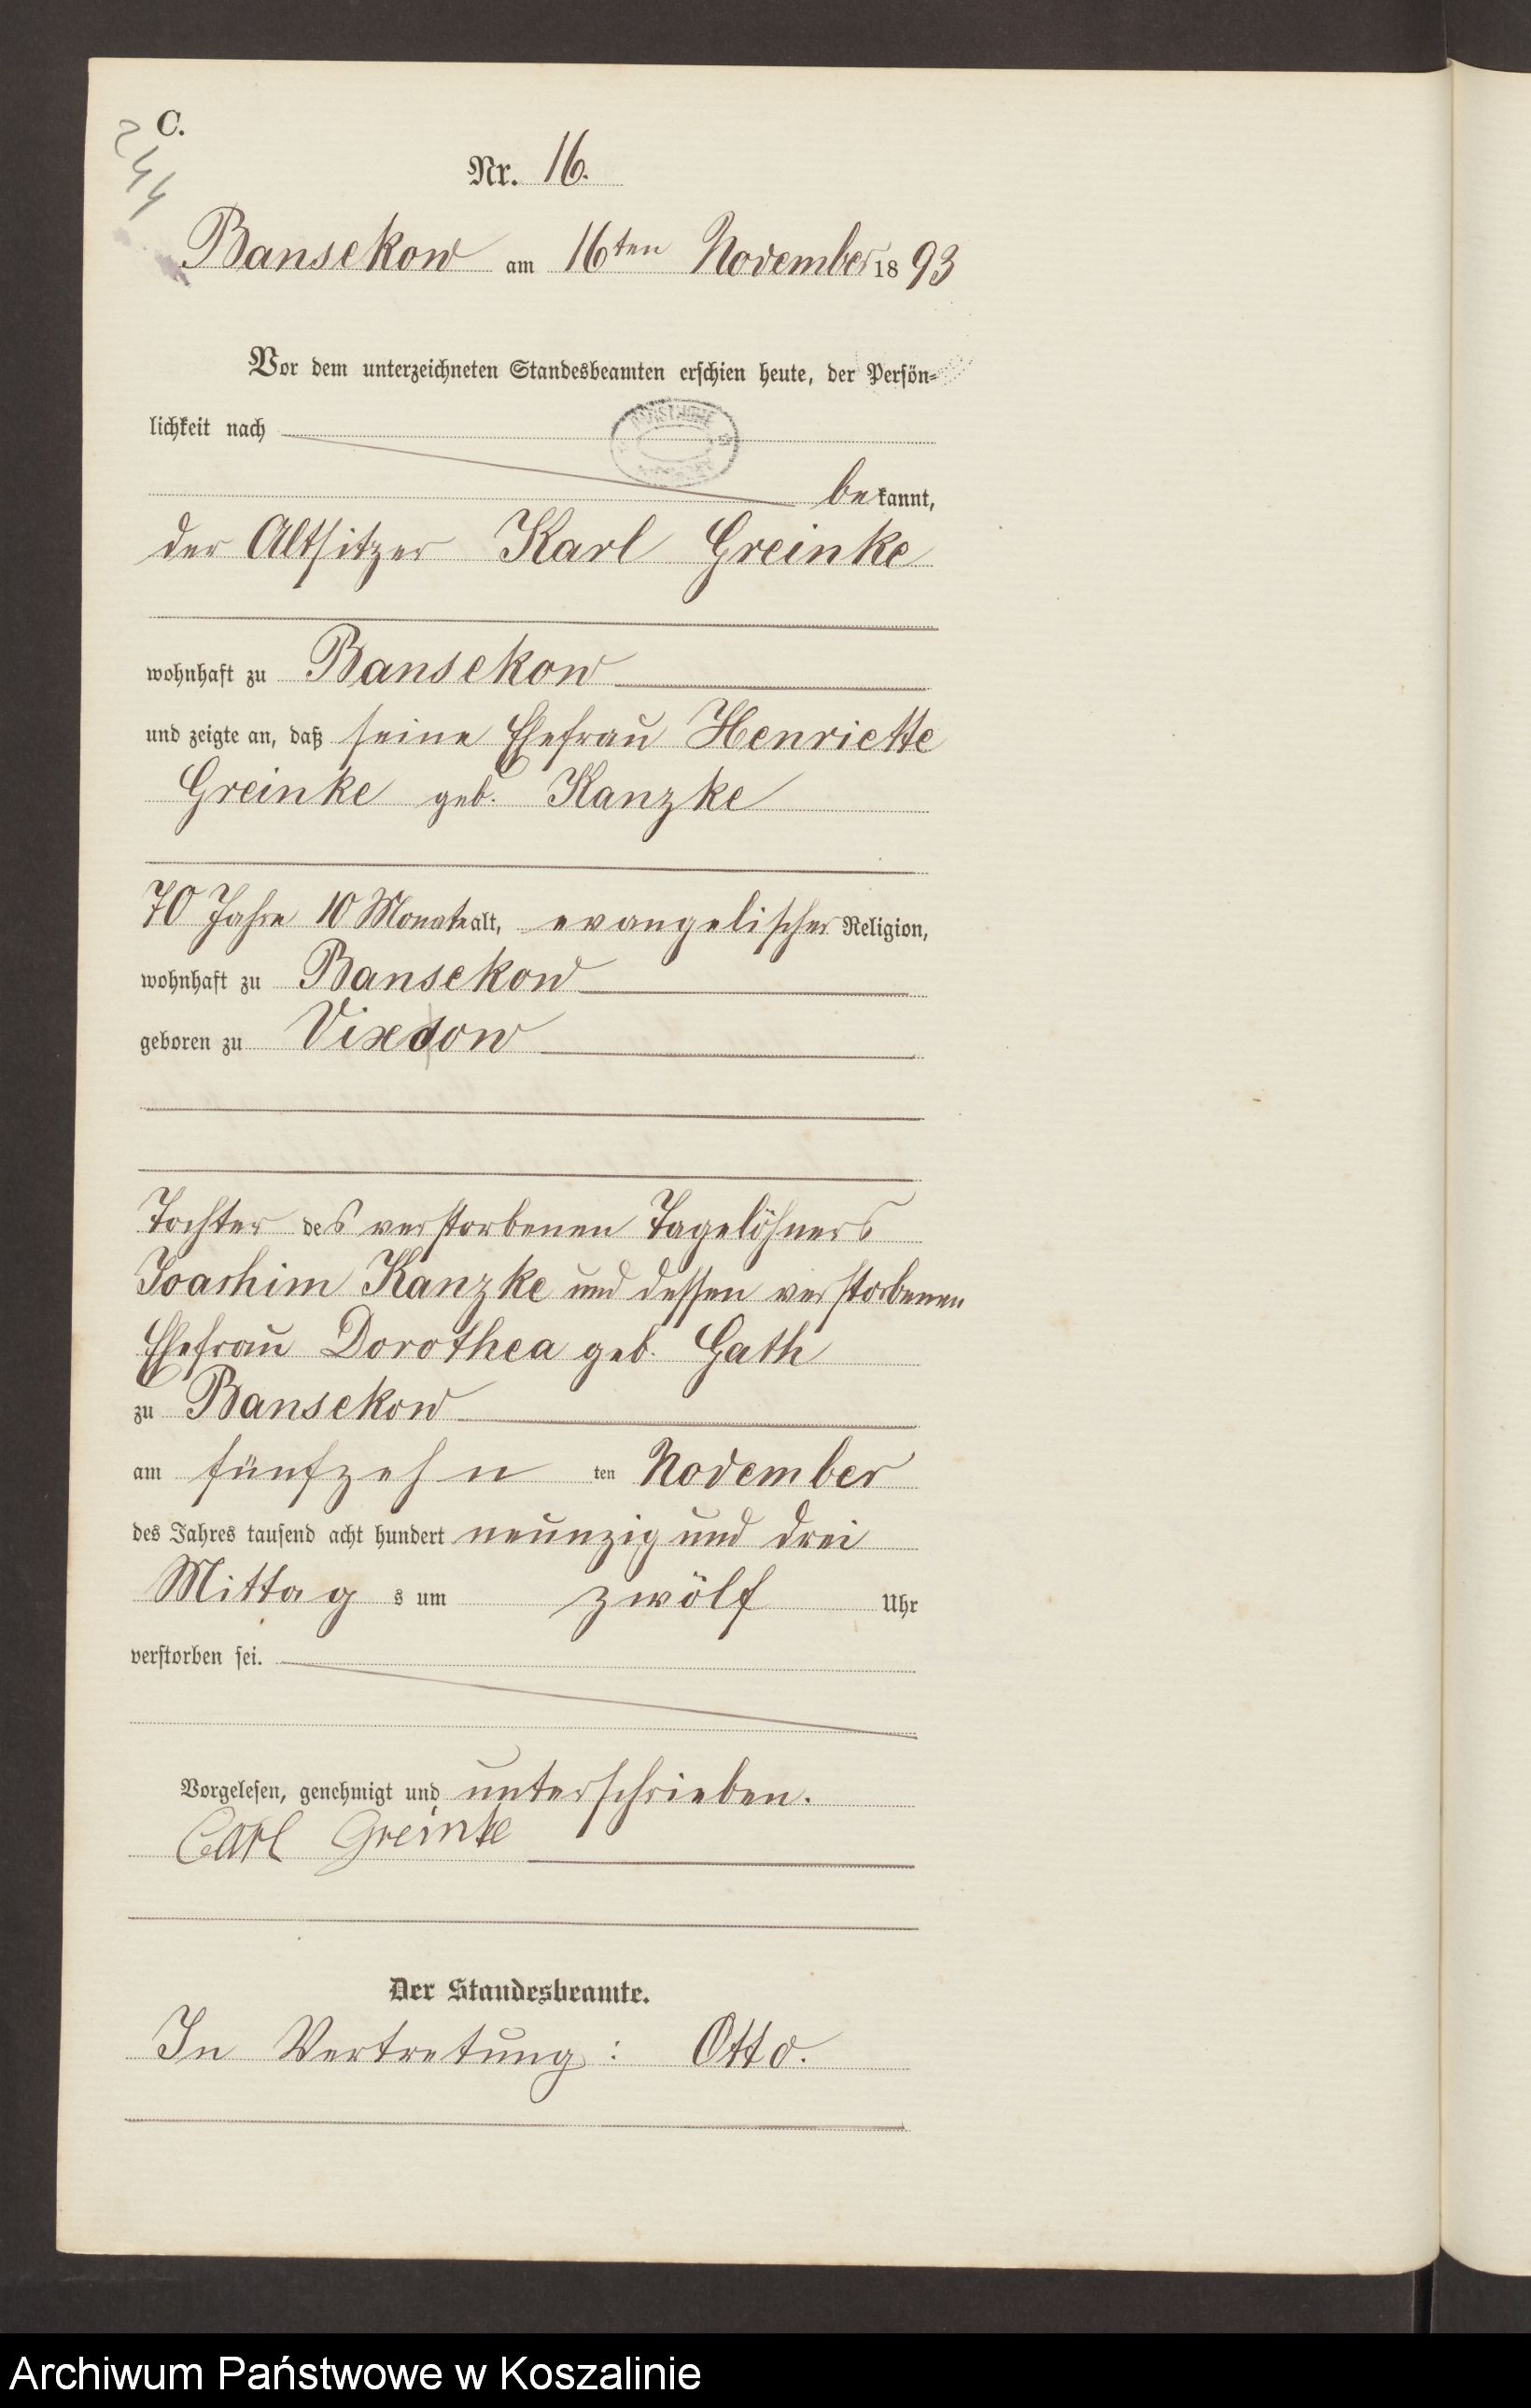 C.
244
Nr. 16.
Bansekow am 16ten November 1893
Vor dem unterzeichneten Standesbeamten erschien heute, der Persön-
lichkeit nach
bekannt,
der Altsitzer Karl Greinke
wohnhaft zu Bansekow
und zeigte an, daß seine Ehefrau Henriette
Greinke geb. Kanzke
70 Jahre 10 Monate alt, evangelischer Religion,
wohnhaft zu Bansekow
geboren zu Vixow
Tochter des verstorbenen Tagelöhners
Joachim Kanzke und dessen verstorbenen
Ehefrau Dorothea geb. Gath
zu Bansekow
am fünfzehn ten November
des Jahres tausend acht hundert neunzig und drei
Mittag s um zwölf Uhr
verstorben sei.
Vorgelesen, genehmigt und unterschrieben.
Carl Greinke
Der Standesbeamte.
In Vertretung: Otto.
Archiwum Państwowe w Koszalinie